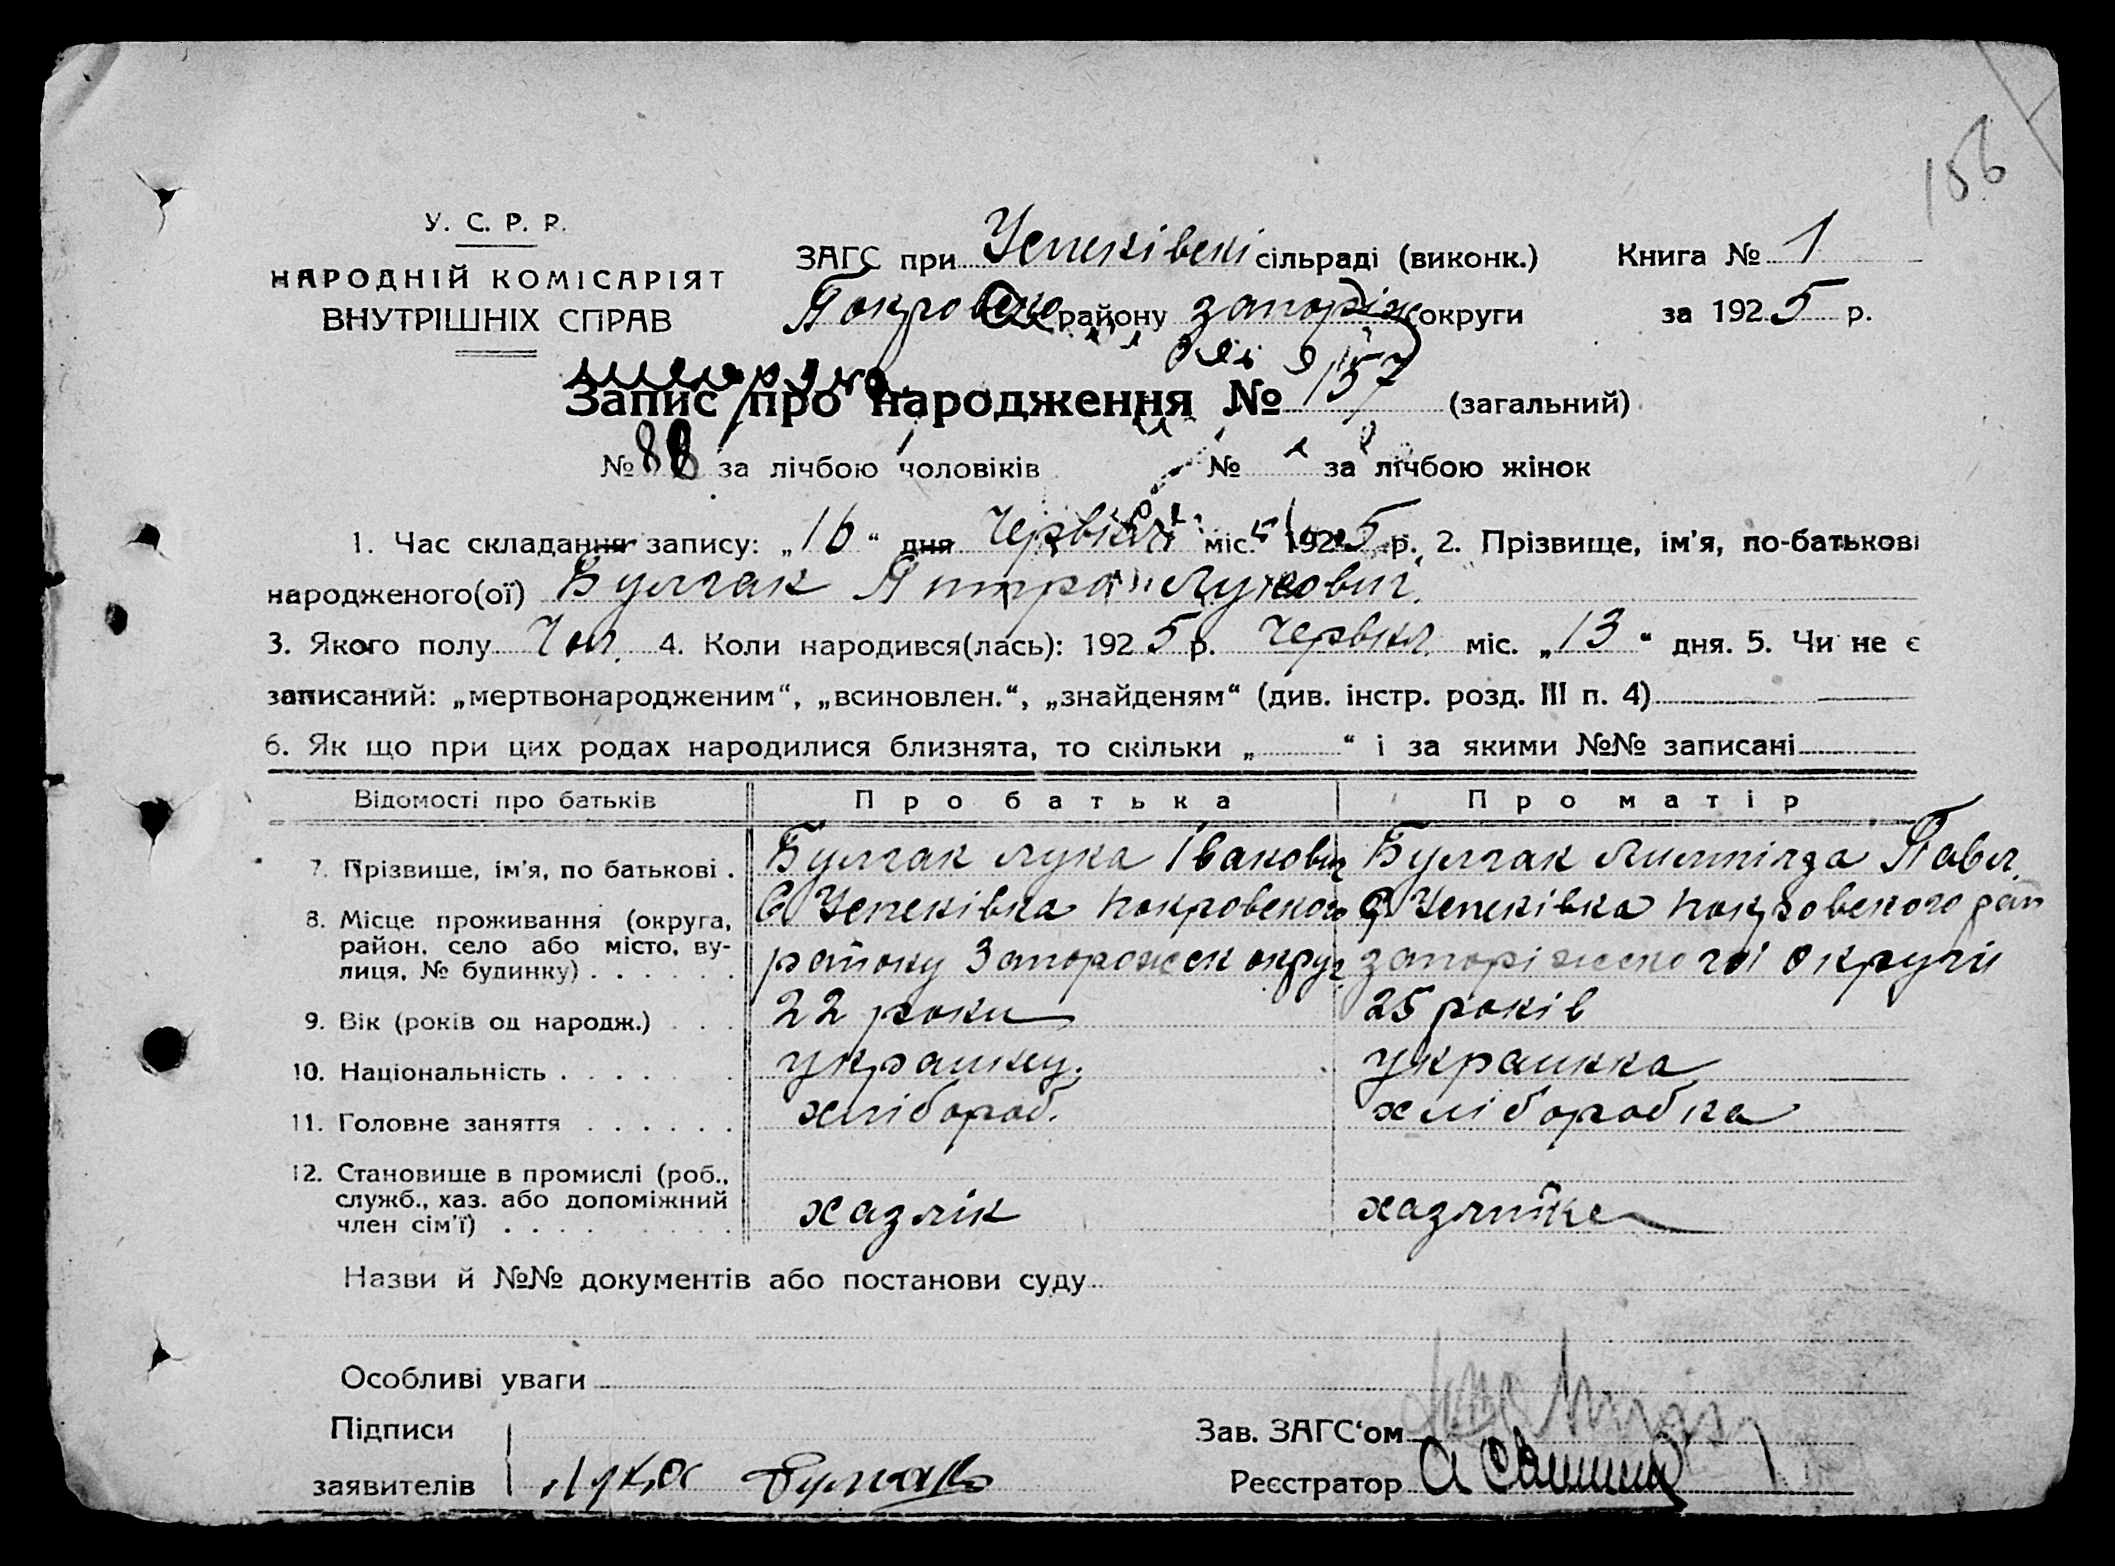 156
У. С. Р. Р.
НАРОДНІЙ КОМІСАРІЯТ
ВНУТРІШНІХ СПРАВ
ЗАГС при Успенівскі сільраді (виконк.) Книга № 1
Покровско району Запоріж округи за 1925 р.
Запис про народження № 157 (загальний)
№ 88 за лічбою чоловіків № за лічбою жінок
1. Час складання запису: „16“ дня Червня міс. 1925 р. 2. Прізвище, ім'я, по-батькові
народженого(ої) Булгак Питро Лукович.
3. Якого полу Чол. 4. Коли народився(лась): 1925 р. Червня міс. „13“ дня. 5. Чи не є
записаний: „мертвонародженим“, „всиновлен.“, „знайденям“ (див. інстр. розд. III п. 4)
6. Як що при цих родах народилися близнята, то скільки „ “ і за якими №№ записані
Відомості про батьків Про батька Про матір
7. Прізвище, ім'я, по батькові . Булгак Лука Іванович Булгак Павл.
8. Місце проживання (округа, район, село або місто, вулиця, № будинку) С Успенівка Покровского С Успенівка Покровского рай
району Запорожск округ Запоріжского округи
9. Вік (років од народж.) 22 роки 25 років
10. Національність украинец. украинка
11. Головне заняття хлібороб. хліборобка
12. Становище в промислі (роб., служб., хаз. або допоміжний член сім'ї) хазяїн хазяйка
Назви й №№ документів або постанови суду
Особливі уваги
Підписи
заявителів Лука Булгак
Зав. ЗАГС'ом
Реєстратор